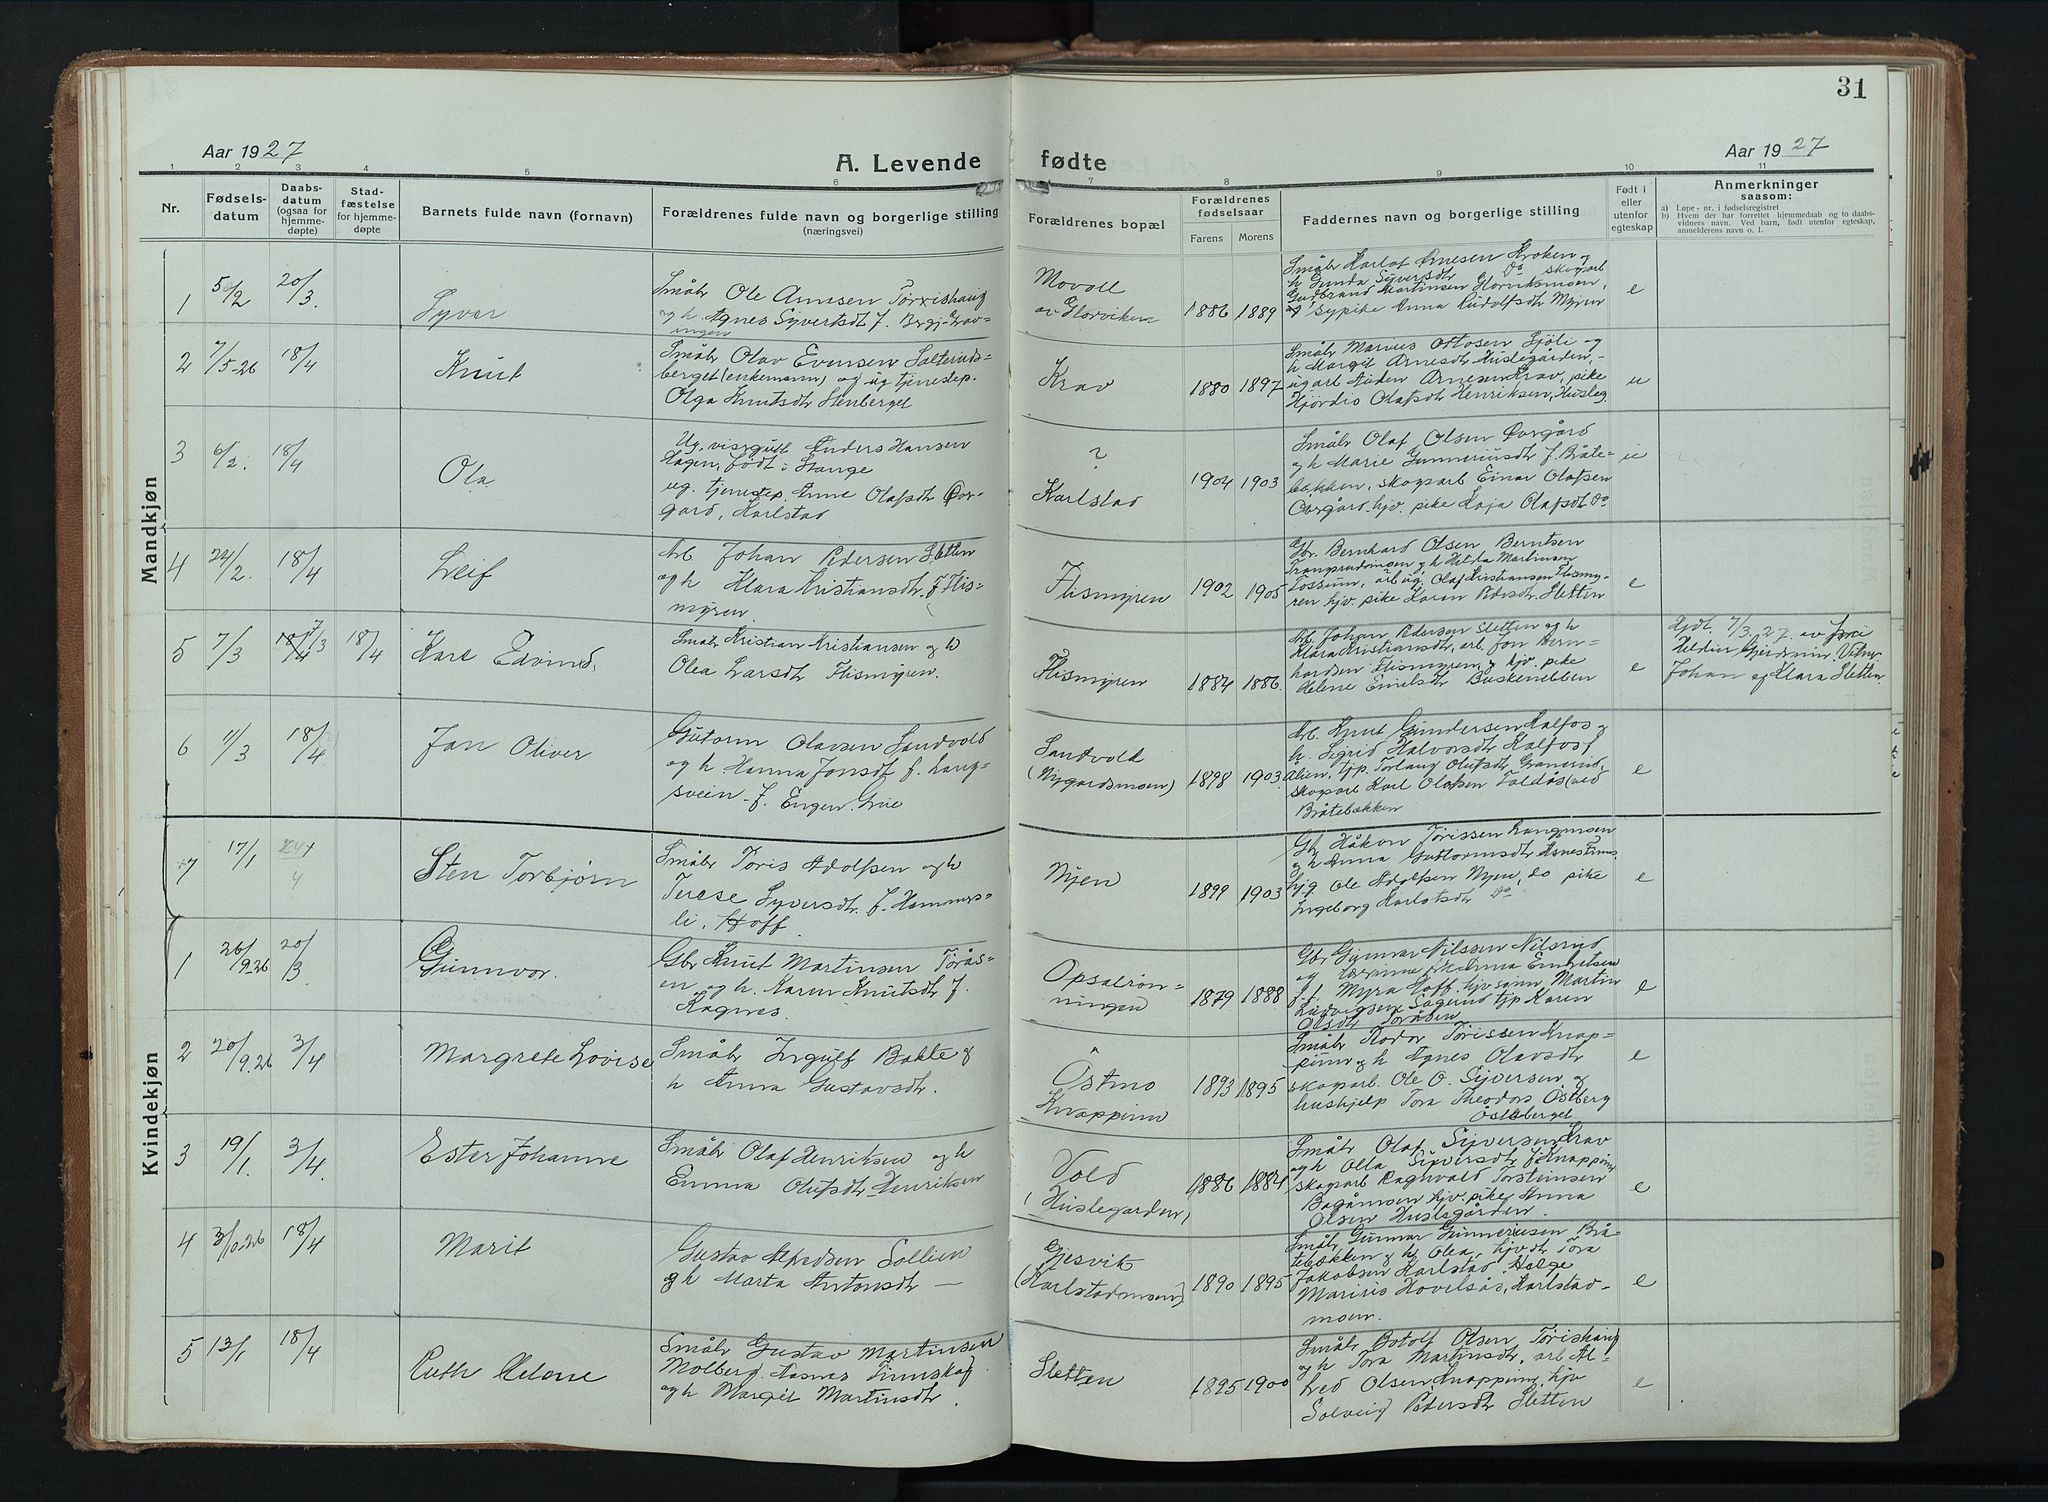 31
Aar 1927
A. Levende fødte
Aar 1927
1 2 3 4 5 6 7 8 9 10 11
Nr.
Fødsels-
datum
Daabs-
datum
(ogsaa for
hjemme-
døpte)
Stad-
fæstelse
for hjemme-
døpte
Barnets fulde navn (fornavn)
Forældrenes fulde navn og borgerlige stilling
(næringsvei)
Forældrenes bopæl
Forældrenes
fødselsaar
Farens Morens
Faddernes navn og borgerlige stilling
Født i
eller
utenfor
egteskap
Anmerkninger
saasom:
a) Løpe-nr. i fødselsregistret
b) Hvem der har forrettet hjemmedaab og to daabs-
vidners navn. Ved barn, født utenfor egteskap,
anmelderens navn o. l.
Mandkjøn
1 5/2 20/3 Syver
Småbr Ole Arnesen Tørrishaug
og h. Agnes Syvertsdt f.
Movoll
av Glorviken
1886 1889
Småbr Karlof Arnesen Kroken og
h Gunda Syversdt Do skogarb
Gudbrand Martinsen Glorviksmoen,
og sypike Anna Rudolfsdt Myren
e
2 7/5-26 18/4 Knut
Småbr Olav Evensen Sæteruds-
berget (enkemann) og ug tjenestep.
Olga Knutsdt Stenberget
Krav
1880 1897
Småbr Marius Ottosen Sjøli og
h Margit Arnesdt Huslegården,
ug arb Auden Arnesen Krav, pike
Hjördis Olafsdt Henriksen, Husleg
u
3 6/2. 18/4 Ola
Ug. visergutt Anders Hansen
Hagen, født i Stange
ug. tjenestep. Anne Olafsdt Övr-
gård, Karlstad
?
Karlstad
1904 1903
Småbr Olaf Olsen Övrgård
og h Marie Gunneriusdt f. Bråte-
bakken, skogarb Einar Olafsen
Övrgård. hjv. pike Kaja Olafsdt Do
u
4 24/2. 18/4 Leif
Arb. Johan Pedersen Sletten
og h Klara Kristiansdt. f Flis-
myren
Flismyren
1902 1905
Gbr. Bernhard Olsen Berntsen
og h Helga Martinsen
Fossum, arb ug. Olaf Kristiansen Flismy-
ren hjv. pike Karen Pedersdt Sletten
e
5 7/3 7/3 18/4 Karl Edvind.
Småbr Kristian Kristiansen og h
Olea Larsdt Flismyren.
Flismyren
1884 1886.
Arb. Johan Pedersen Sletten og h
Klara Kristiansdt, arb. Jon Bern-
hardsen Flismyren, og hjv. pike
Helene Emilsdt Buskenebben
e
Hjdt. 7/3. 27. av
Vitner
Johan og Klara Sletten
6 11/3 18/4. Jan Oliver
Gutorm Olavsen Sandvold
og h. Hanna Jonsdt f. Lang-
svein. f. Engen. Grue
Sandvold
(Nygårdsmoen)
1898 1903.
Arb. Knut Gundersen Kalfos og
h. Sigrid Halvorsdt Kalfos f
Alien, tjp. Torlaug Olufsdt Granerud,
skogarb Karl Olafsen Toldås (ved
Bråtebækken
e
+7 17/1 Sten Torbjørn
Småbr Toris Adolfsen og h
Terese Syversdt. f. Hammers-
li. Hoff
Myen
1899 1903
Gbr Håkon Tørissen Langmoen
og h Anna Guttormsdt Åsnes Finns.
hj. g. Ole Adolfsen Myen, do pike
Ingeborg Karlofsdt Do
e
Kvindekjøn
1 26/9.26 20/3 Gunnvor.
Gbr Knut Martinsen Törås-
en og h. Karen Knutsdt f.
Kognes.
Opsalrön-
ningen
1879 1888
Gbr Gunnar Nilssen Nilsrud
og Anna Embretsen
g. f. Myra Hoff. hjv sønn, Martin
Ludvigsen Sagerud tjp Karen
Olsdt Toråsen
e
2 20/9.26 3/4 Margrete Lovise
Småbr Ingulf Bakke og
h Anna Gustavsdt.
Östmo
Knappinn
1893 1895
Småbr Rodor Tørissen Knap-
pinn og h Agnes Olavsdt
skogarb. Ole O. Syversen, og
hushjelp Tora Theodors Østberg
Østeberget
e
3 19/1. 3/4. Ester Johanne
Småbr Olaf Henriksen og h
Emma Olufsdt Henriksen
Vold
(Huslegarden)
1886 1884
Småbr Olaf Syversen Krav
og h Olla Syversdt f Knappinn
skogarb Ragnvald Torsteinsen
Bogåmoen hjv. pike Anna
Olsen Huslegården.
e
4 3/10-26 18/4 Marit
Gustav Alfredsen Sollien
og h Marta Antonsdt —
Gjesvik
(Karlstadmoen)
1890 1895
Småbr Gunnar Gunneriusen Brå-
tebækken og h Olea, hjvdt Tora
Jakobsen Karlstad, Helge
Marius Hovelsås, Karlstad-
moen.
e
5 13/1 18/4 Ruth Helene
Småbr Gustav Martinsen
Molberg. Aasnes Finnskog
og h Margit Martinsdt.
Sletten
1895 1900
Småbr Botolf Olsen, Törishaug
og h Tora Martinsdt, arb Al-
fred Olsen Knappinn, hjv
Solveig Pedersdt Sletten
e